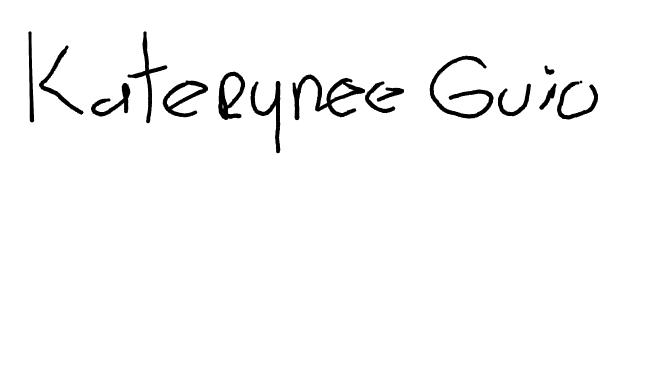 Katerynee Guio